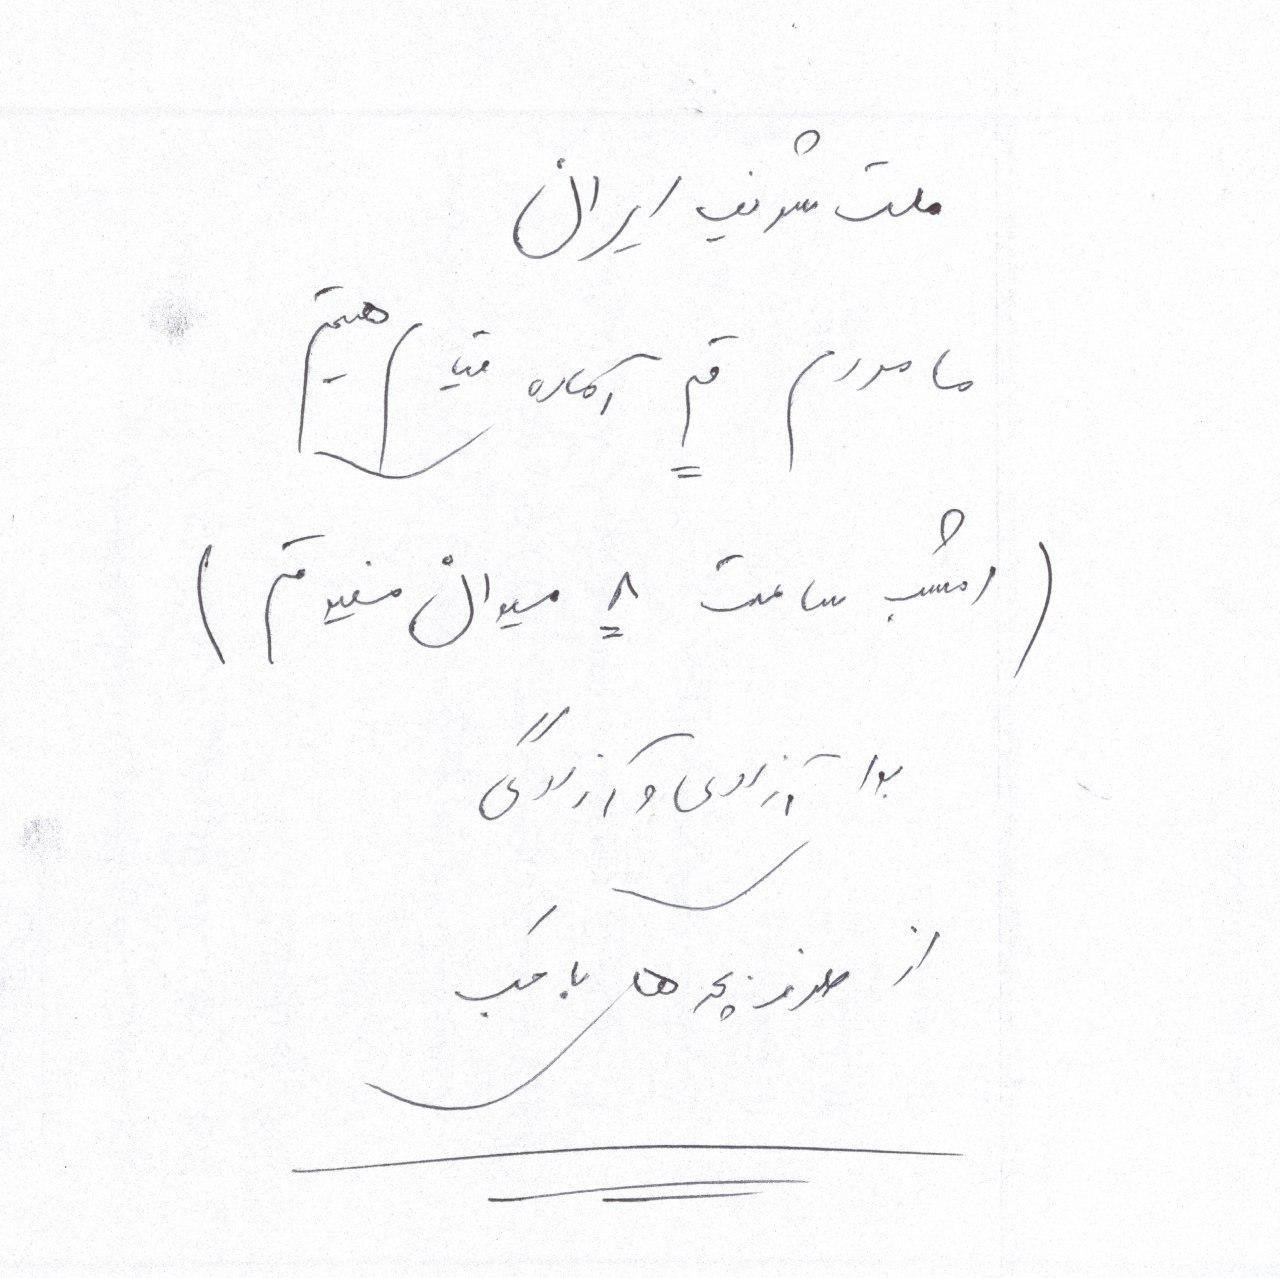 ملت شریف ایران
ما مردم قم آماده قیام هستیم
(امشب ساعت ۸ میدان صفیر قم)
برا آزادی و آزادگی
از طرف بچه های باحک